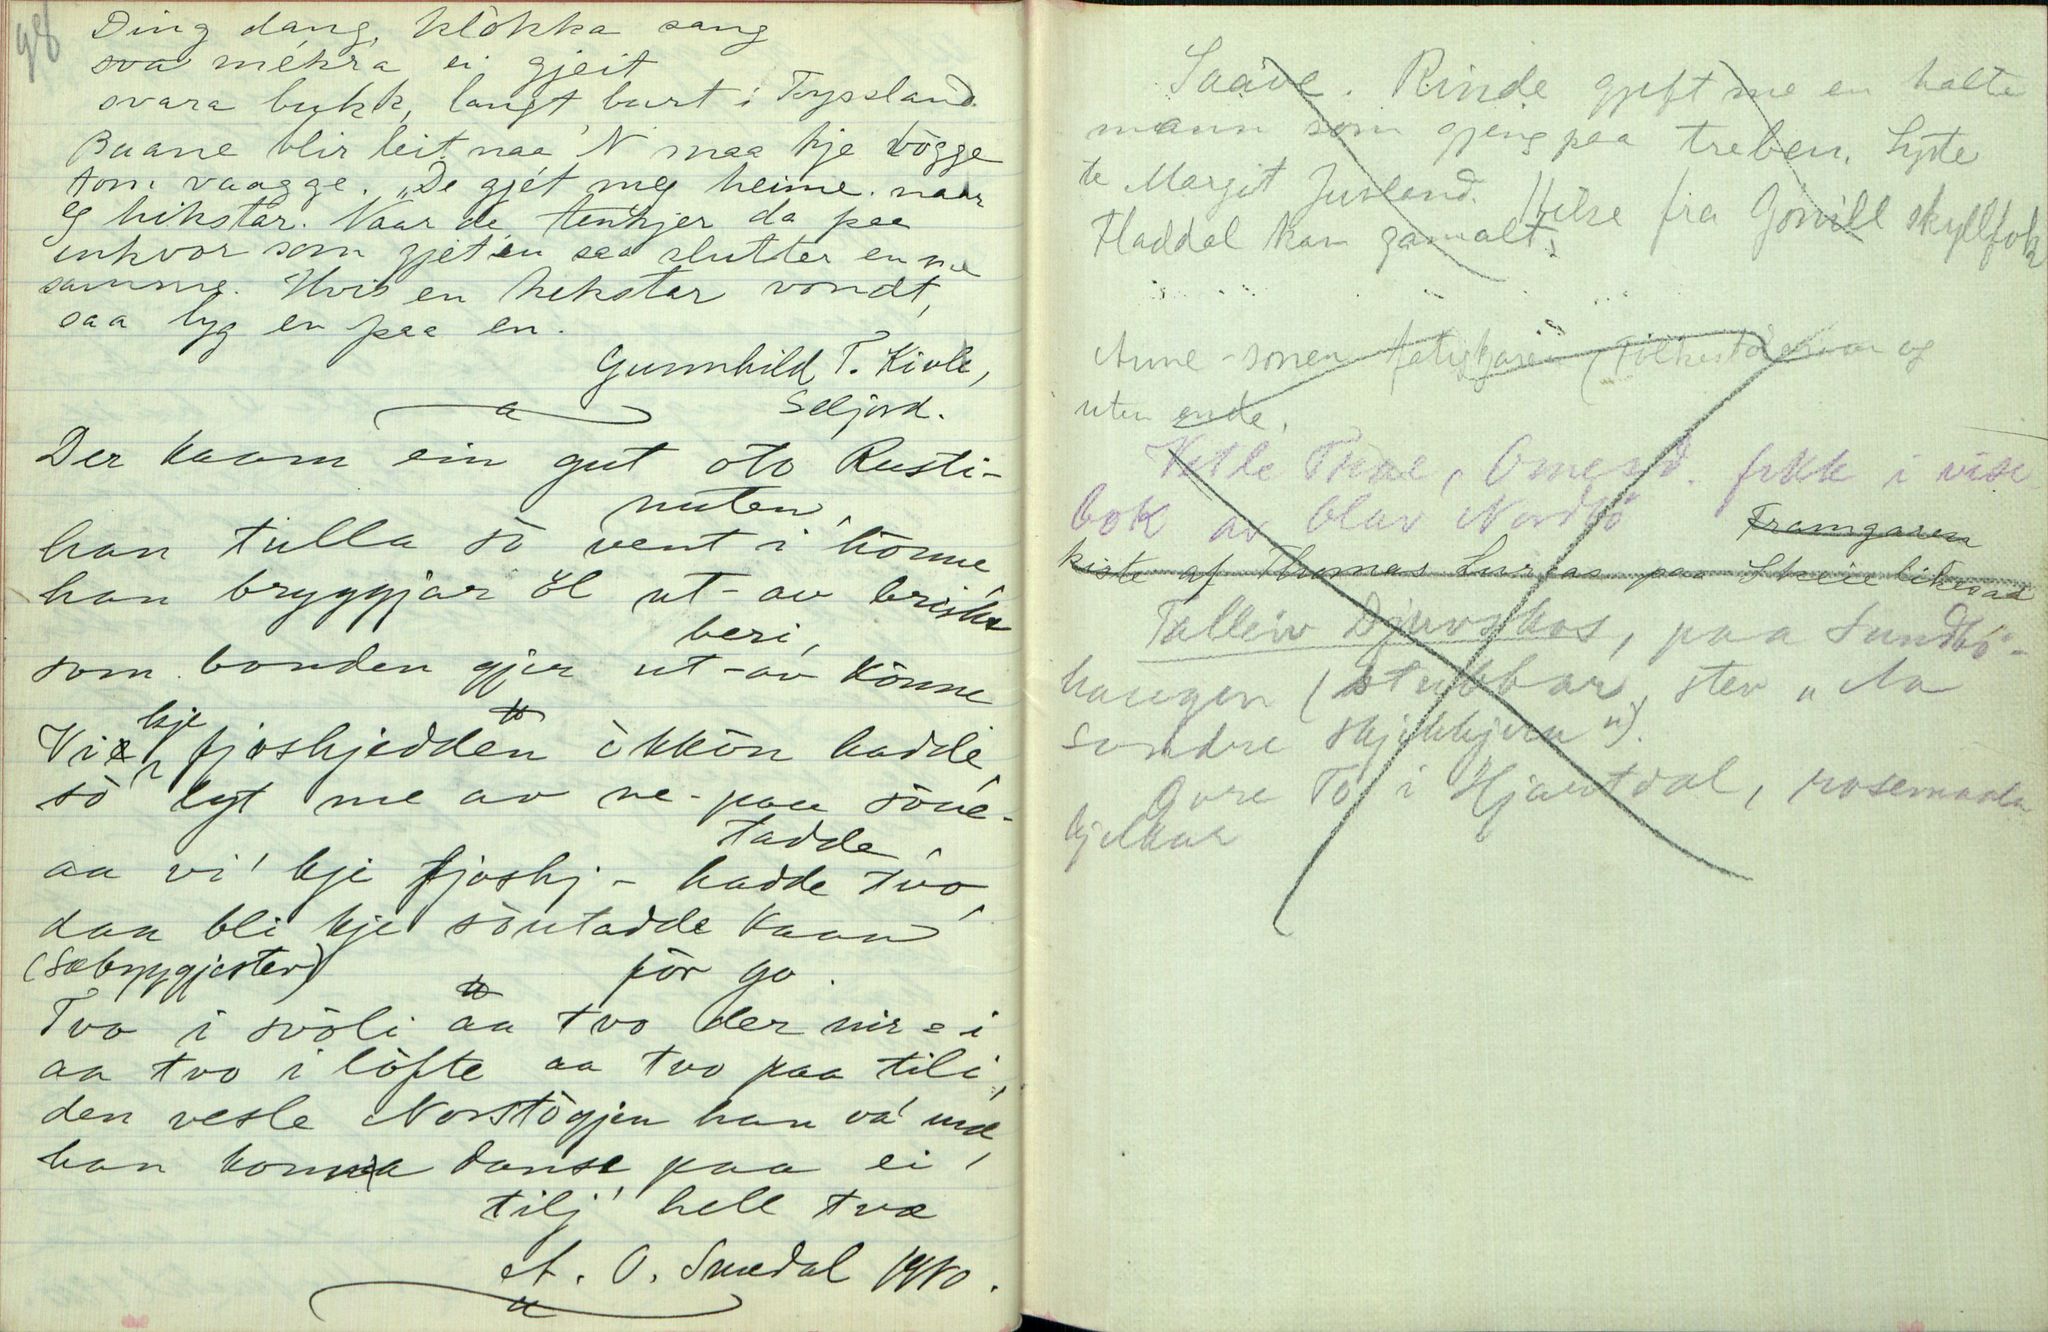 98
Ding dang, klòkka sang
sva mékra ei gjeit
svara bukk, langt burt i Tyssland.
Baane blir leit naa 'N maa kje vògge
tom vaagge. "De gjét meg heime. naar
eg hikstar. Naar de tenkjer da paa
enkvor som gjet en saa slutter en me
samme. Hvis en hekstar vondt,
saa lyg en paa en.
Gunnhild T. Kivle,
Seljord.
Der kaam ein gut oto Rusti-
nuten,
han tulla sò vent i hònne
han bryggjar öl ut-av briske
beri,
som bonden gjer ut-av könne
Vi kje fjoshjedden òkkön hadde,
sò lyt me av ne-paa söue-
tadde,
aa vi' kje fjoshj- hadde tvo,
daa bli kje söutadde kaan
för go.
(Sæbyggjestev)
Tvo i svöli aa tvo der nir-i
aa tvo i lòfte aa tvo paa tili,
den vesle Norstögjen han va' mæ,
han konna danse paa ei
tilj' hell tvæ
A. O. Smedal 1910.
Saave. Rinde gjeft me en halte
mann som gjeng paa treben. Syste
te Margit Jusland. Hilse fra Gönill skyllfok
Fladdal kan gamalt.
Anne-sonen fatigkaren (
uten ende.
Ketle Tveve, Omesd. fekk i vise
bok av Olav Nordbö
Framgaren
kiste af Thomas Luraas paa Skeie
Talleiv Djuvskas, paa Sundbö-
haugen (stubbar, stev "Aa
sondre skjekkjera").
Gure Tö i Hjartdal, rosemaala
kjelkar